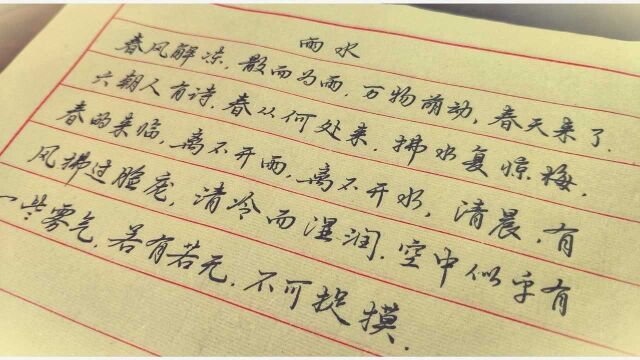 雨水
春风解冻，散而为雨，万物萌动，春天来了.
六朝人有诗，春从何处来，拂水复惊梅，
春的来临，离不开雨，离不开水，清晨，有
风拂过脸庞，清冷而湿润，空中似乎有
一些雾气，若有若无，不可捉摸.